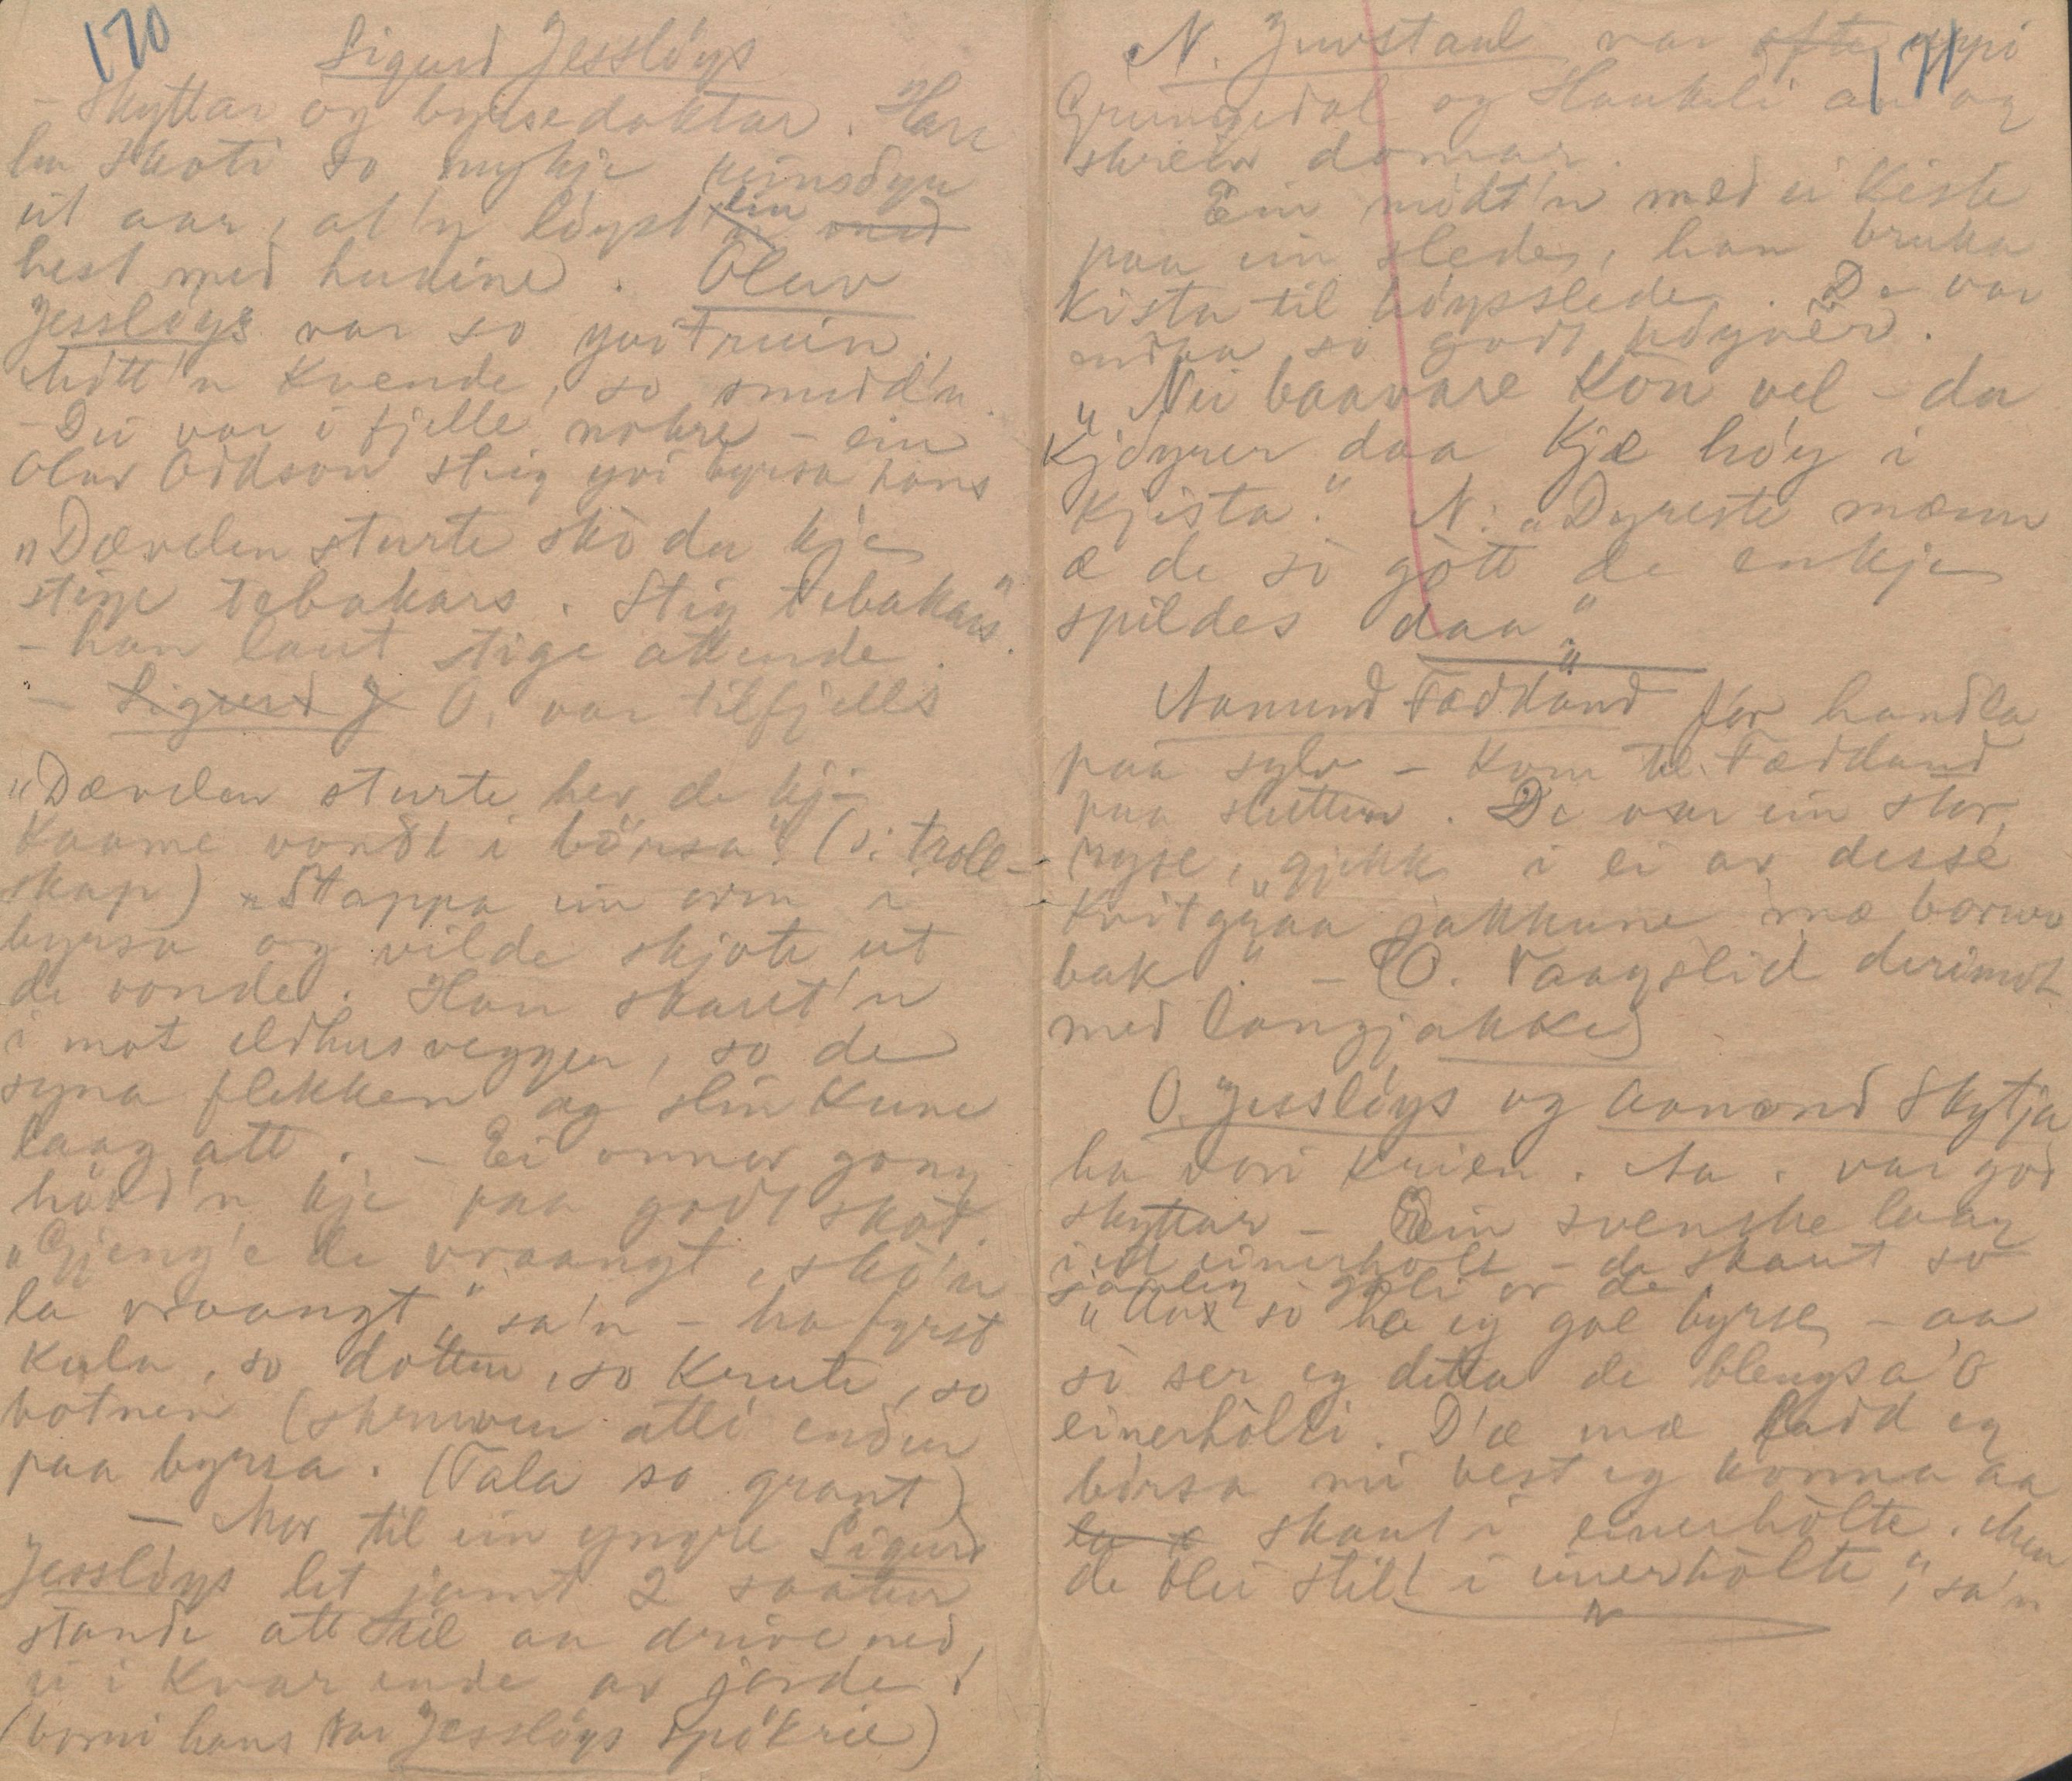 170
Sigurd Jesslöys
- Skyttar og byrsedoktar. Han
ha skoti so mykje reinsdyr
eit aar, at 'n löyst ein
hest med hudine. Olav
Jesslöys var so yvitruin.
Mött'n kvende, so snudd'n.
- Dei var i fjelle nokre - ein
Olav Oddson steig yvi byrsa hans
"Dævelen sturte sko du kje
stige tebakars. Stig tebakars".
- han laut stige attende.
- Sigurd J O. var tilfjells
"Dævelen sturte hev de kje
kaame vondt i börsa" (o: troll-
skap) - Stappa ein orm i
byrsa og vilde skjote ut
de vonde. Han skaut 'n
i mot eldhusveggen, so de
syna flekken og slin kune
laag att. - Ei onnor gong
höld'n kje paa godt skot.
"Gjeng'e de vraangt, sko'n
la vraangt", sa'n - ha fyrst
kula, so dotten, so krute, so
botnen (skruven atti enden
paa byrsa. (Tala so grant)
- Mor til ein yngre Sigurd
Jesslöys let jamt 2 saater
stande att til aa drive ned,
ei i kvar ende av jorde!
(borni hans var Jesslöys spökrie)
171
N. Juvstaul var ofte uppi
Grungedal og Haukeli aa og
skreiv domar.
Ein mödt'n med ei kiste
paa ein slede, han bruka
kista til höysslede. De var
endaa so godt höyver.
"Nei baavare kon vel - du
kjöyrer daa kje höy i
kjista." N: "Dyreste mænn
æ de so gött de enkje
spildes daa".
Aamund Fæddand for handla
paa sylv - kom til Fæddand
paa slutten. De var ein stor
ryse, "gjekk i ei av desse
kvitgraa jakkune mæ borur
bak." - (O. Vaagslid derimot
med langjakke)
O. Jesslöys og Aamond Skytja
ha vori krien. Aa. var god
skyttar - Ein svenske laag
i eit einerholt - de skaut so
"Aax so ha eg gae byrse - aa
so ser eg detta de blengsa 'o
einerhölti. D'æ mæ ladd eg
börsa mi best eg konna aa
skaut i einerhölte. Men
de blei still i einerhölte", sa'n